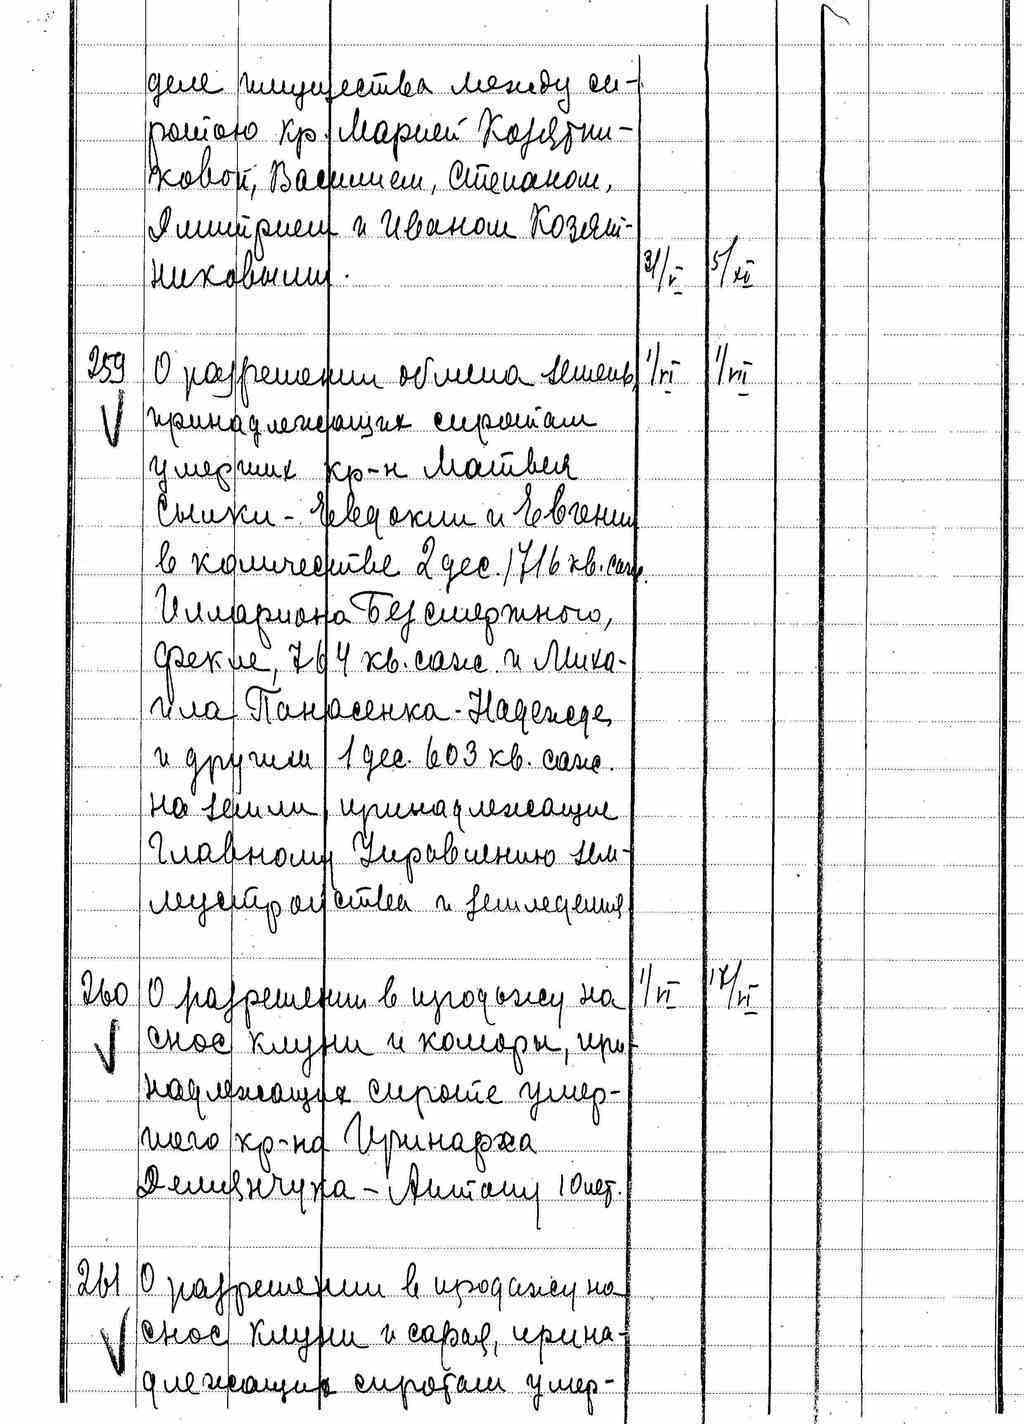 деле имущества между си-
ротою кр. Марией Козятни-
ковой, Василием, Степаном,
Дмитрием и Иваном Козят-
никовыми. 31/V 5/XI
259 О разрешении обмена земель, 1/VI 1/VII
принадлежащих сиротам
умерших кр-н Матвея
Сышки - Евдокии и Евгении
в количестве 2 дес. 1716 кв. саж.
Иллариона Безсмертного,
Фекле, 764 кв. саж. и Миха-
ила Панасенка - Надежде
и другим 1 дес. 603 кв. саж.
на земли, принадлежащие
Главному Управлению зем-
леустройства и земледелия
260 О разрешении в продажу на 1/VI 17/VI
снос клуни и коморы, при-
надлежащих сироте умер-
шего кр-на Иринарха
Демянчука - Антону 10 лет.
261 О разрешении в продажу на
снос клуни и сарая, прина-
длежащих сиротам умер-